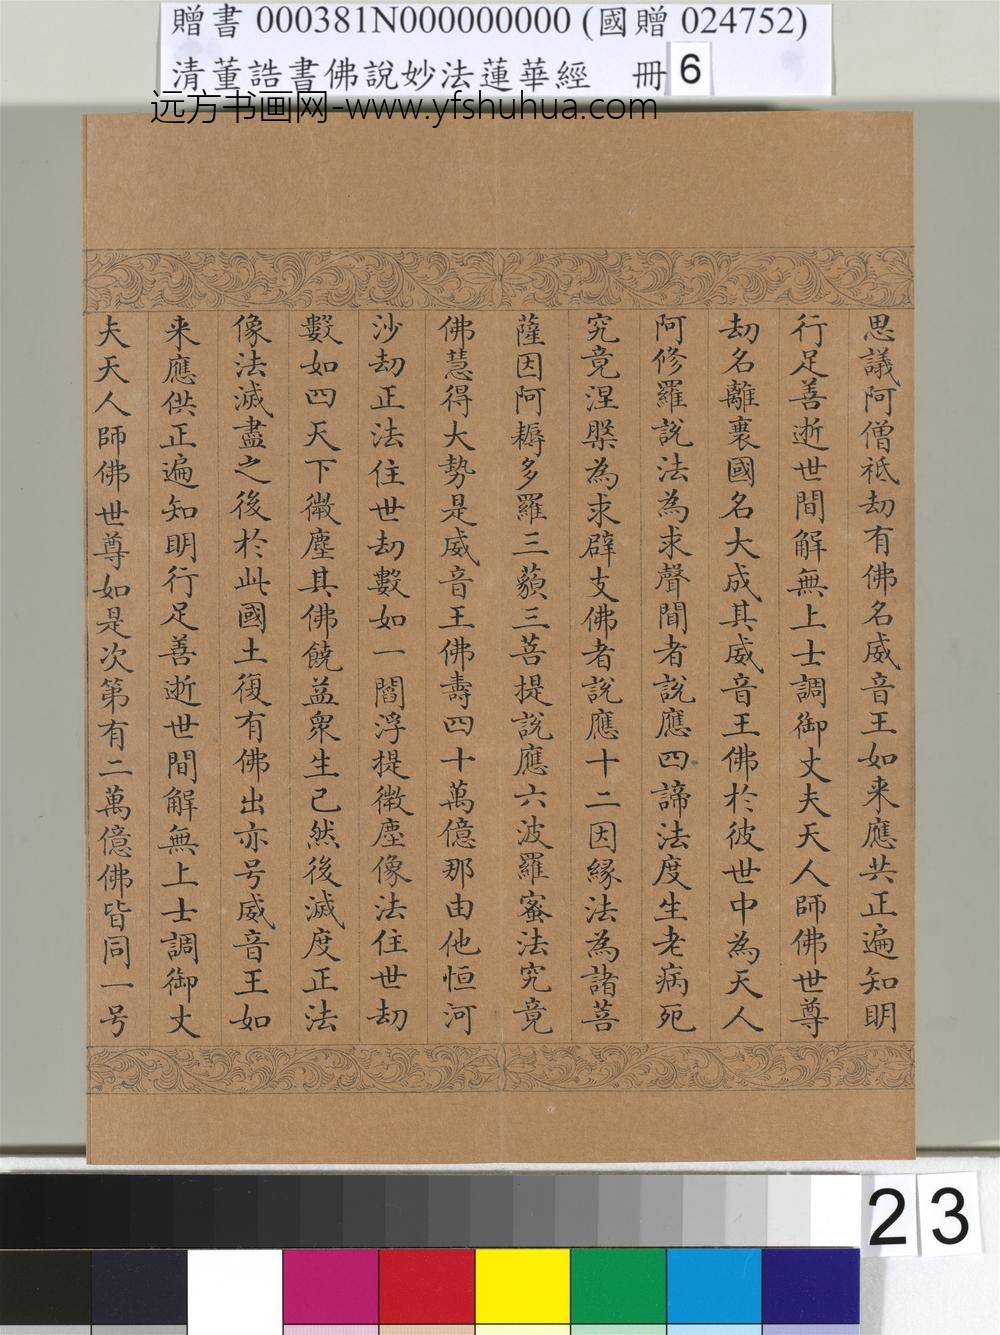 贈書 000381N000000000 (國贈 024752)
清董誥書佛說妙法蓮華經 冊 6
远方书画网-www.yfshuhua.com
思議阿僧祇劫有佛名威音王如来應共正遍知明
行足善逝世間解無上士調御丈夫天人師佛世尊
劫名離衰國名大成其威音王佛於彼世中為天人
阿修羅說法為求聲聞者說應四諦法度生老病死
究竟涅槃為求辟支佛者說應十二因緣法為諸菩
薩因阿耨多羅三藐三菩提說應六波羅蜜法究竟
佛慧得大勢是威音王佛壽四十萬億那由他恒河
沙劫正法住世劫數如一閻浮提微塵像法住世劫
數如四天下微塵其佛饒益眾生已然後滅度正法
像法滅盡之後於此國土復有佛出亦号威音王如
来應供正遍知明行足善逝世間解無上士調御丈
夫天人師佛世尊如是次第有二萬億佛皆同一号
23